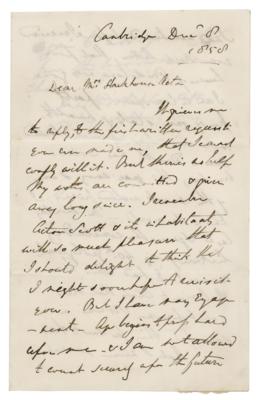 Cambridge Decr 8
1858
Dear Mrs Stackhouse
It grieves me
to reply, to the first written request
Ever made me, that I cannot
comply with it. But there is no help
My votes are committed & given
away long since. I remember
Acton Scott & its inhabitants
with so much pleasure that
I should delight to think that
I might soon hope to revisit
Ever. But I have many Engage
-ments. Age begins to press hard
upon me. & I am not allowed
to count securely upon the future